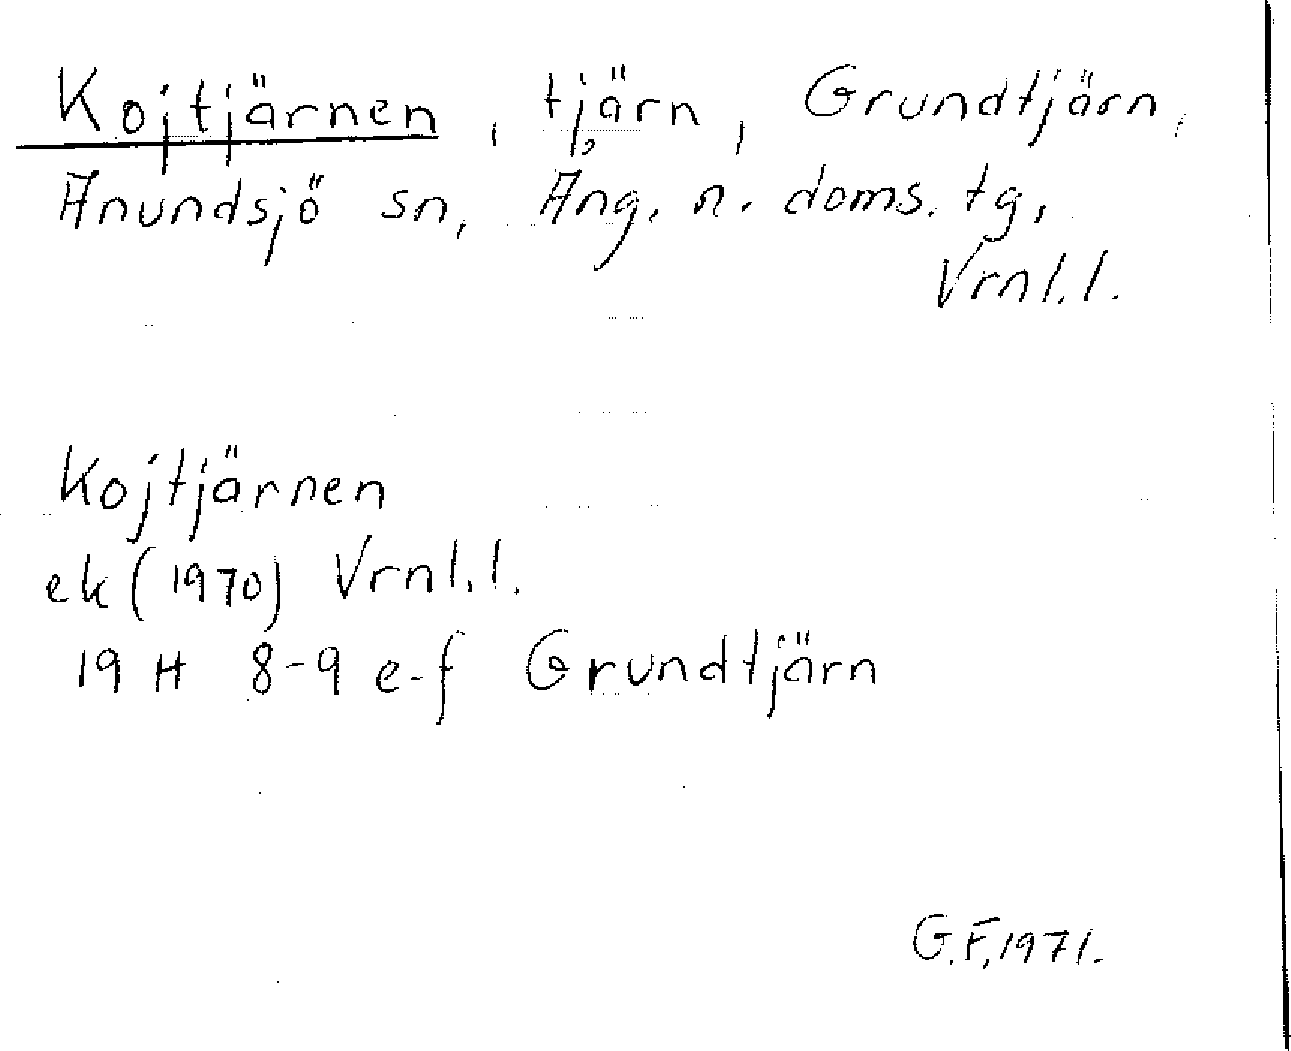 Kojtjärnen, tjärn, Grundtjärn,
Anundsjö sn, Ång. n. doms. tg,
Vrnl.l.
Kojtjärnen
ek (1970) Vrnl.l.
19 H 8-9 e-f Grundtjärn
G.F, 1971.